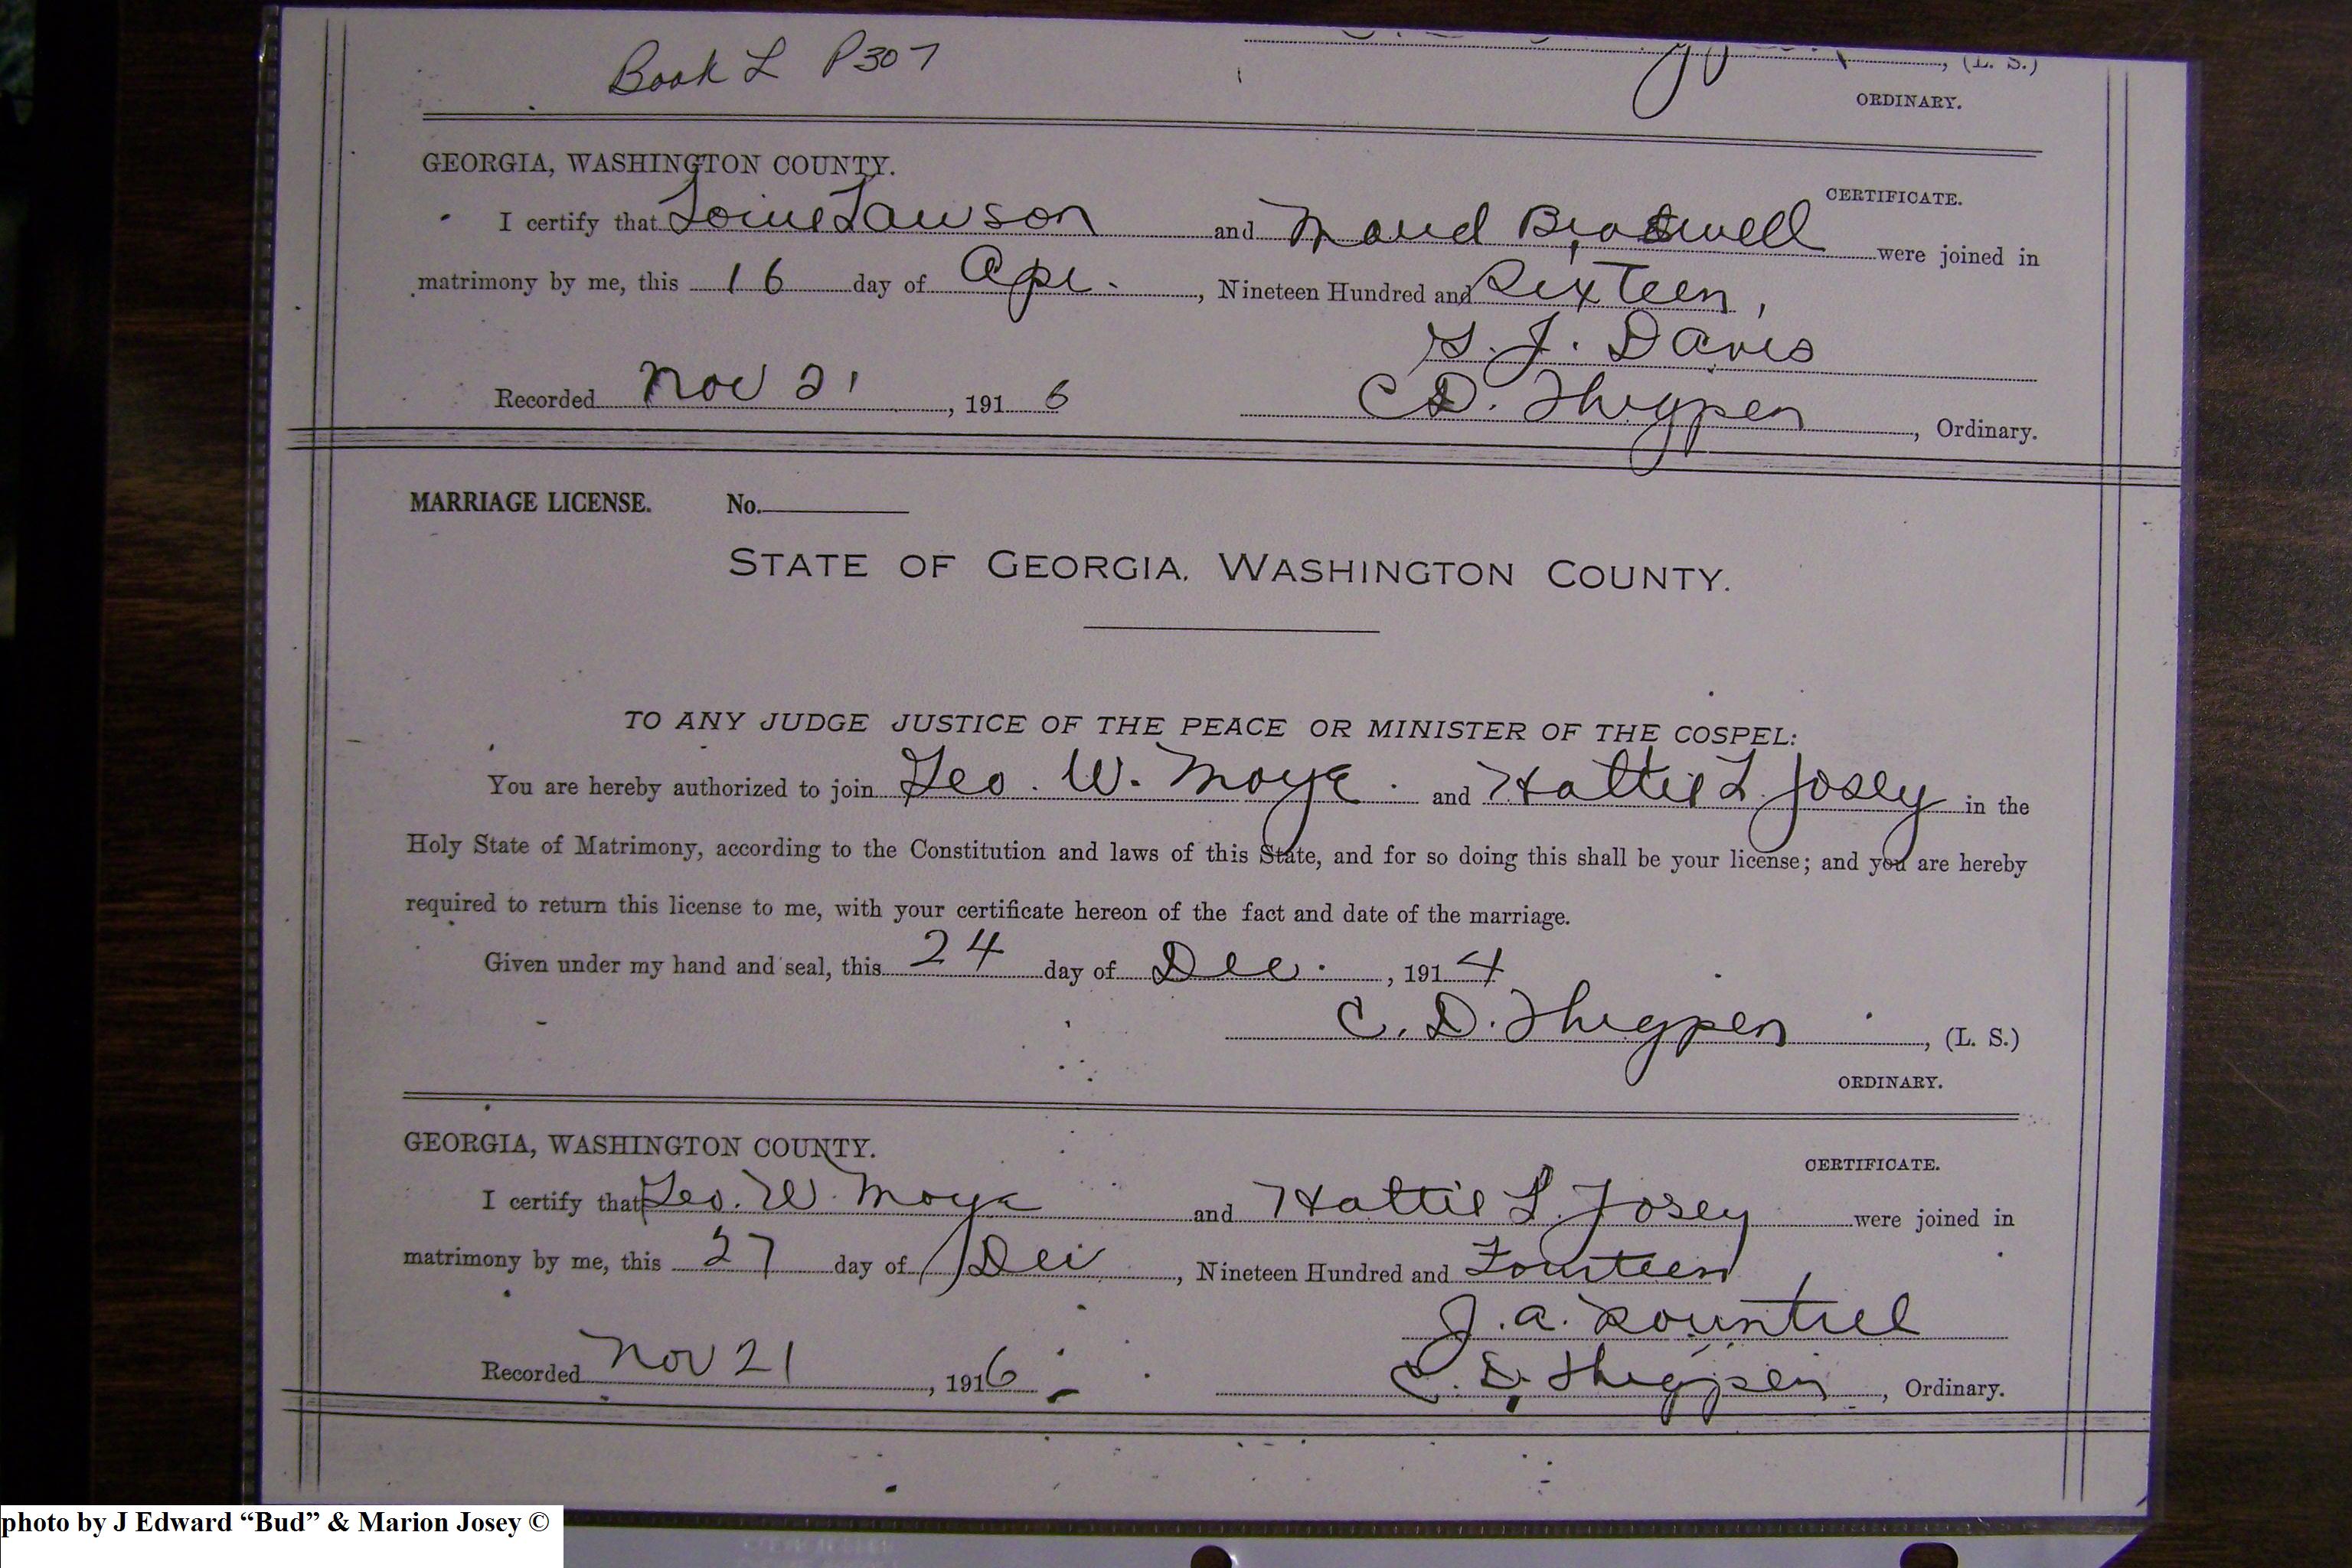 Book L P307
, (L. S.)
ORDINARY.
GEORGIA, WASHINGTON COUNTY.
CERTIFICATE.
I certify that Lawson and Maud Braswell were joined in
matrimony by me, this 16 day of Apr. , Nineteen Hundred and Sixteen,
G. J. Davis
Recorded Nov 21 , 1916 C D. Thigpen , Ordinary.
MARRIAGE LICENSE. No.
STATE OF GEORGIA, WASHINGTON COUNTY.
TO ANY JUDGE JUSTICE OF THE PEACE OR MINISTER OF THE COSPEL:
You are hereby authorized to join Geo. W. Moye. and Hattie L Josey in the
Holy State of Matrimony, according to the Constitution and laws of this State, and for so doing this shall be your license; and you are hereby
required to return this license to me, with your certificate hereon of the fact and date of the marriage.
Given under my hand and seal, this 24 day of Dec. , 1914
C. D. Thigpen , (L. S.)
ORDINARY.
GEORGIA, WASHINGTON COUNTY.
CERTIFICATE.
I certify that Geo. W. Moye and Hattie L. Josey were joined in
matrimony by me, this 27 day of Dec , Nineteen Hundred and Fourteen
J. A. Rountree
Recorded Nov 21 , 1916 C. D. Thigpen , Ordinary.
photo by J Edward “Bud” & Marion Josey ©